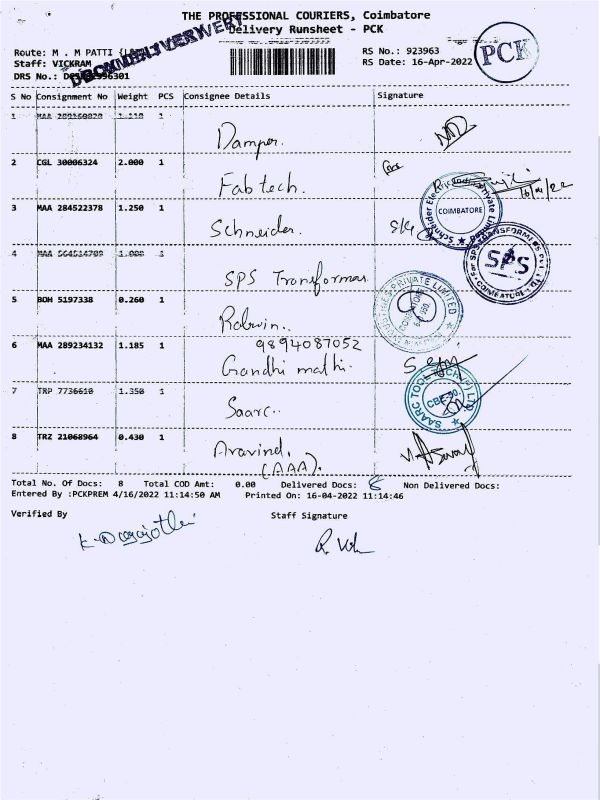 THE PROFESSIONAL COURIERS, Coimbatore
Delivery Runsheet - PCK
Route: M . M PATTI
Staff: VICKRAM
DRS No.:
RS No.: 923963
RS Date: 16-Apr-2022
PCK
S No Consignment No Weight PCS Consignee Details Signature
1 MAA 1.110 1 Damper.
2 CGL 30006324 2.000 1 Fabtech.
16/04/22
3 MAA 284522378 1.250 1 Schneider.
COIMBATORE
4 MAA 564514789 1.000 SPS Transformer
SPS
5 BOM 5197338 0.260 1 Robwin..
9894087052
6 MAA 289234132 1.185 1 Gandhi mathi.
7 TRP 7736610 1.350 1 Saarc..
8 TRZ 21068964 0.430 1 Aravind.
(AAA).
Total No. Of Docs: 8 Total COD Amt: 0.00 Delivered Docs: 8 Non Delivered Docs:
Entered By :PCKPREM 4/16/2022 11:14:50 AM Printed On: 16-04-2022 11:14:46
Verified By Staff Signature